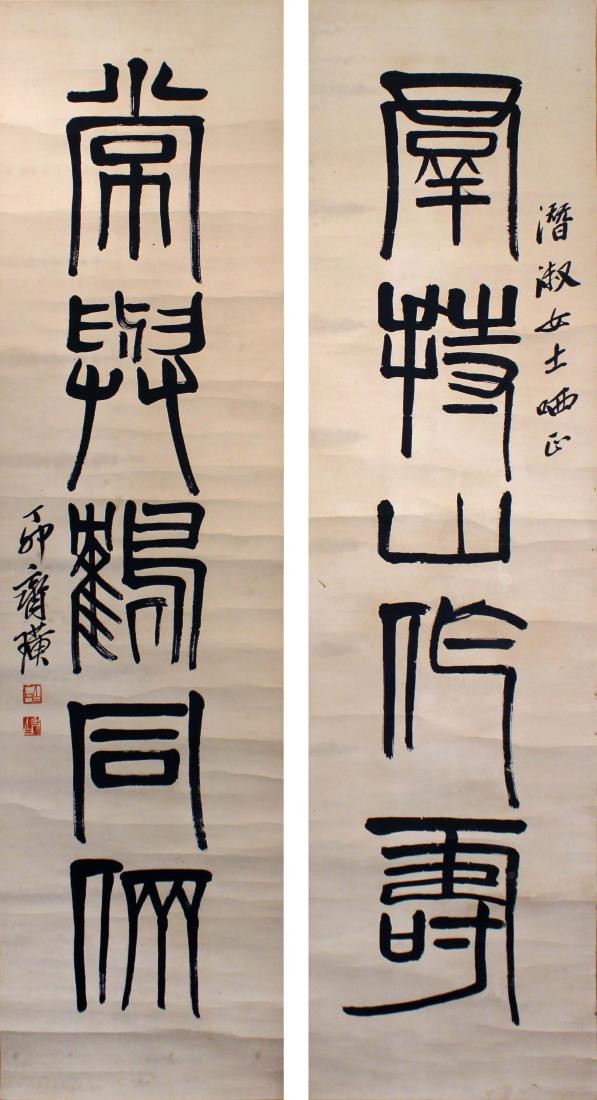 羣持山作壽
潛淑女士哂正
常與鶴同倆
丁卯齊璜